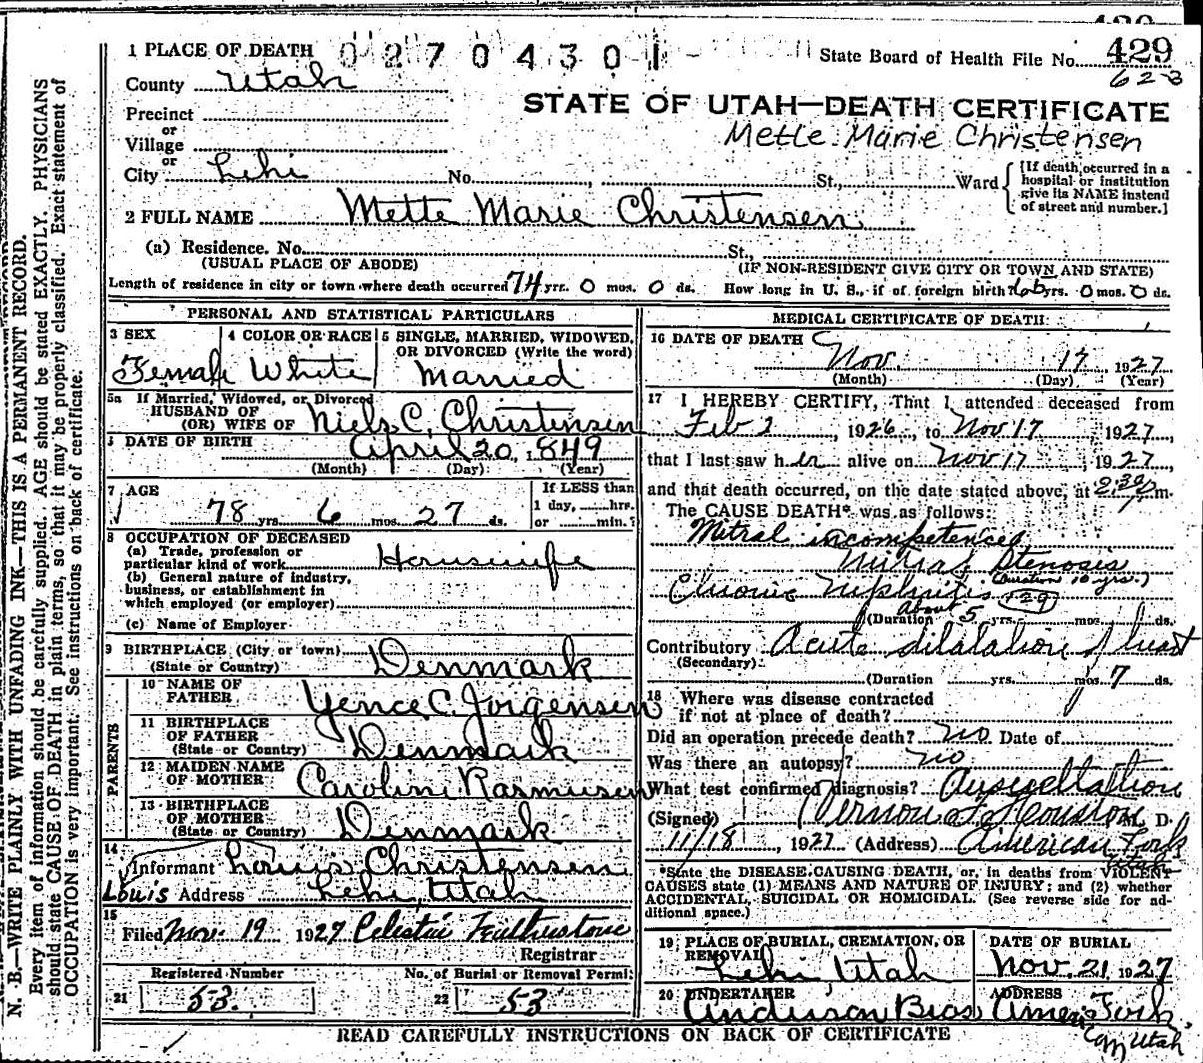 429
1 PLACE OF DEATH 0270430 State Board of Health File No. 429
County Utah 62-3
STATE OF UTAH—DEATH CERTIFICATE
Precinct
or
Village
or
Mette Marie Christensen
City Lehi No. , St., Ward
[If death occurred in a hospital or institution give its NAME instead of street and number.]
2 FULL NAME Mette Marie Christensen
(a) Residence. No. St.,
(USUAL PLACE OF ABODE) (IF NON-RESIDENT GIVE CITY OR TOWN AND STATE)
Length of residence in city or town where death occurred 74 yrs. 0 mos. 0 ds. How long in U. S., if of foreign birth? yrs. 0 mos. 0 ds.
PERSONAL AND STATISTICAL PARTICULARS
3 SEX Female
4 COLOR OR RACE White
5 SINGLE, MARRIED, WIDOWED, OR DIVORCED (Write the word) Married
5a If Married, Widowed, or Divorced
HUSBAND OF
(OR) WIFE OF Niels C. Christensen
DATE OF BIRTH April 20, 1849
(Month) (Day) (Year)
7 AGE 78 yrs. 6 mos. 27 ds.
If LESS than
1 day, hrs.
or min.?
8 OCCUPATION OF DECEASED
(a) Trade, profession or
particular kind of work Housewife
(b) General nature of industry,
business, or establishment in
which employed (or employer)
(c) Name of Employer
9 BIRTHPLACE (City or town)
(State or Country) Denmark
PARENTS
10 NAME OF
FATHER Yence C. Jorgensen
11 BIRTHPLACE
OF FATHER
(State or Country) Denmark
12 MAIDEN NAME
OF MOTHER Caroline Rasmusen
13 BIRTHPLACE
OF MOTHER
(State or Country) Denmark
14
Informant Louis Christensen
Louis Address Lehi, Utah
15
Filed Nov. 19 1927 Celestia Featherstone
Registrar
Registered Number No. of Burial or Removal Permit
21 53. 22 53
MEDICAL CERTIFICATE OF DEATH
16 DATE OF DEATH
Nov. 17 1927
(Month) (Day) (Year)
17 I HEREBY CERTIFY, That I attended deceased from
Feb 2, 1926, to Nov 17, 1927,
that I last saw her alive on Nov 17, 1927,
and that death occurred, on the date stated above, at 2:30 p.m.
The CAUSE DEATH* was as follows:
Mitral incompetence
Mitral Stenosis
(Duration 10 yrs.)
Chronic Nephritis 129
About
(Duration 5 yrs. mos. ds.
Contributory Acute dilatation of heart
(Secondary)
(Duration yrs. mos. 7 ds.
18 Where was disease contracted
if not at place of death?
Did an operation precede death? no Date of
Was there an autopsy? no
What test confirmed diagnosis? Auscultation
(Signed) Vernon F. Houston M. D.
11/18, 1927 (Address) American Fork
Utah
*State the DISEASE CAUSING DEATH, or, in deaths from VIOLENT
CAUSES state (1) MEANS AND NATURE OF INJURY; and (2) whether
ACCIDENTAL, SUICIDAL OR HOMICIDAL. (See reverse side for ad-
ditional space.)
19 PLACE OF BURIAL, CREMATION, OR
REMOVAL
Lehi, Utah
DATE OF BURIAL
Nov. 21, 1927
20 UNDERTAKER
Anderson Bros
ADDRESS
Amer. Fork
Utah
READ CAREFULLY INSTRUCTIONS ON BACK OF CERTIFICATE
N. B.—WRITE PLAINLY WITH UNFADING INK—THIS IS A PERMANENT RECORD.
Every item of information should be carefully supplied. AGE should be stated EXACTLY. PHYSICIANS
should state CAUSE OF DEATH in plain terms, so that it may be properly classified. Exact statement of
OCCUPATION is very important. See instructions on back of certificate.